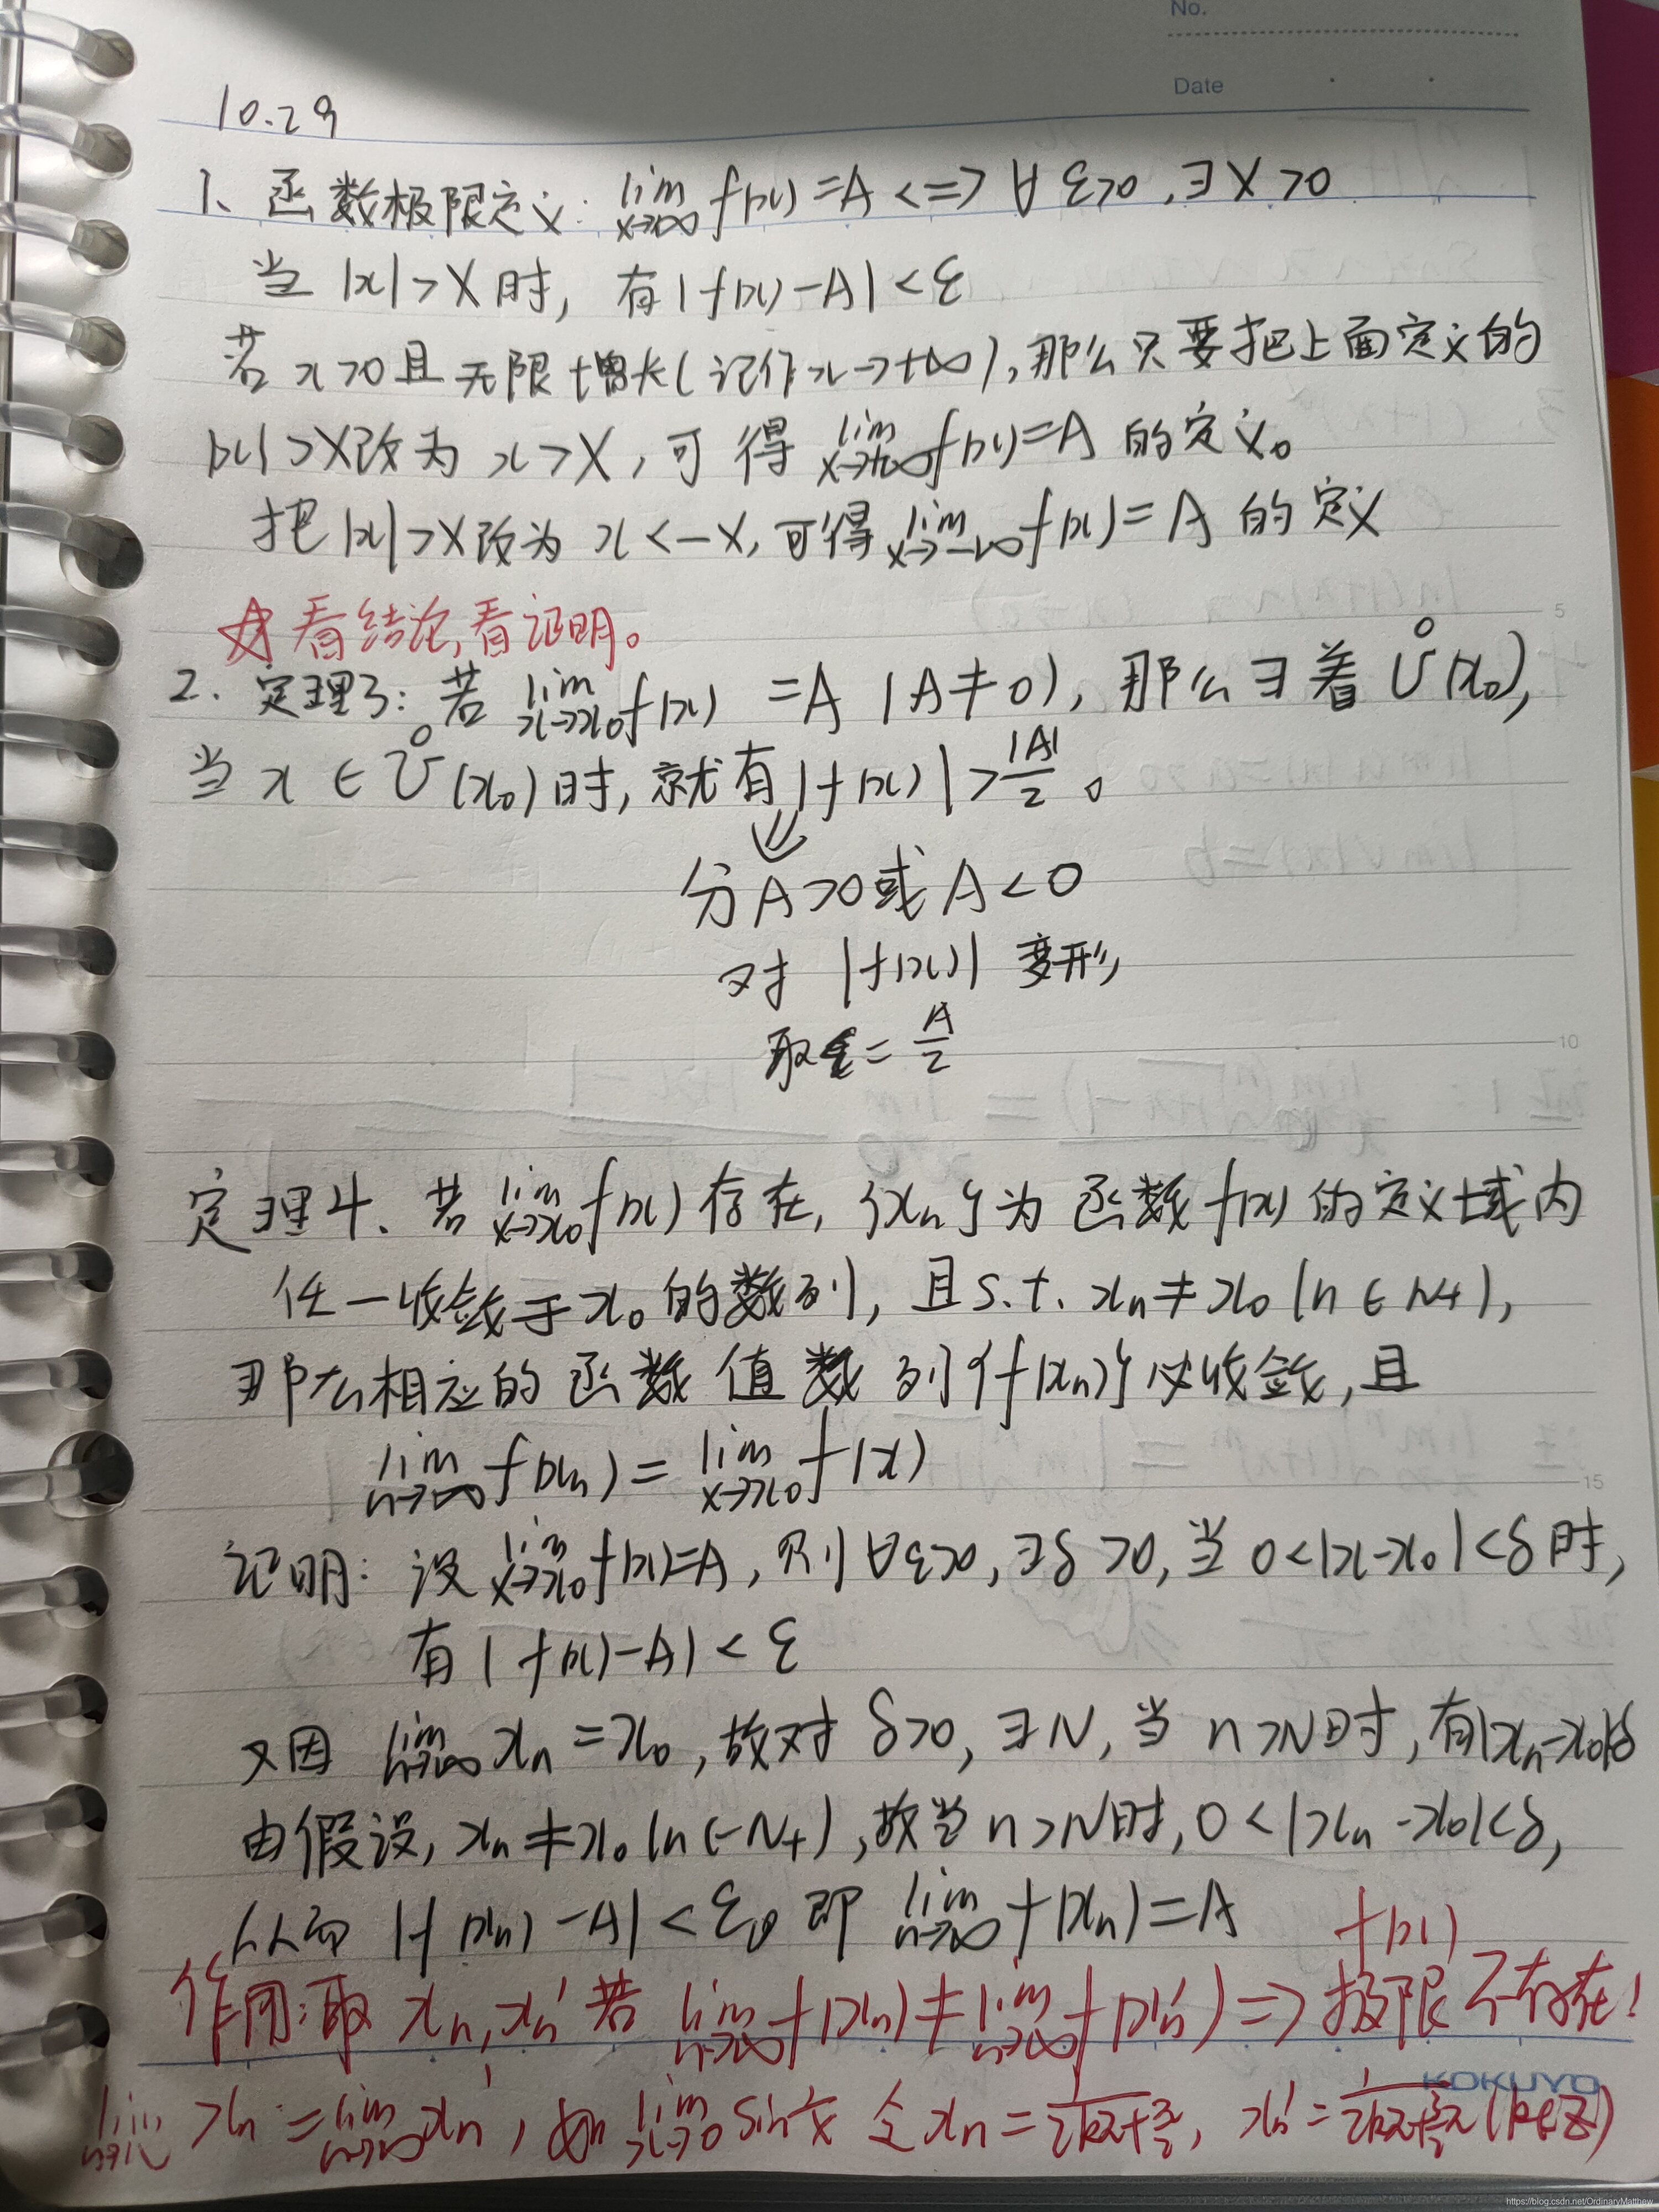 No.
Date
10.29
1、函数极限定义: lim x→∞ f(x)=A <=> ∀ ε>0, ∃X>0
当 |x|>X时, 有|f(x)-A|<ε
若x>0且无限增长(记作x→+∞),那么只要把上面定义的
|x|>X改为 x>X,可得 lim x→+∞ f(x)=A 的定义。
把|x|>X改为 x<-X,可得 lim x→-∞ f(x)=A 的定义
☆看结论,看证明。
5
2. 定理3: 若 lim x→x₀ f(x) =A (A≠0), 那么∃着 Ů(x₀),
当 x∈Ů(x₀)时, 就有|f(x)|>|A|/2。
⇓
分A>0或A<0
对 |f(x)| 变形
取ε=A/2
10
定理4、若 lim x→x₀ f(x)存在, {xₙ}为 函数f(x)的定义域内
任一收敛于x₀的数列, 且s.t. xₙ≠x₀ (n∈N+),
那么相应的函数值数列{f(xₙ)}必收敛,且
lim n→∞ f(xₙ)=lim x→x₀ f(x)
15
证明: 设 lim x→x₀ f(x)=A, 则∀ε>0,∃δ>0,当0<|x-x₀|<δ时,
有|f(x)-A|<ε
又因 lim n→∞ xₙ=x₀,故对 δ>0, ∃N, 当 n>N时, 有|xₙ-x₀|<δ
由假设, xₙ≠x₀(n∈N+),故当n>N时,0<|xₙ-x₀|<δ,
从而 |f(xₙ)-A|<ε。即 lim n→∞ f(xₙ)=A
f(x)
作用:取 xₙ,xₙ' 若 lim n→∞ f(xₙ)≠lim n→∞ f(xₙ') => 极限不存在!
KOKUYO
lim n→∞ xₙ=lim n→∞ xₙ', 如 lim x→0 sin 1/x 令xₙ=1/(2kπ+π/2), xₙ'=1/(2kπ+3/2π)(k∈Z)
https://blog.csdn.net/OrdinaryMatthew